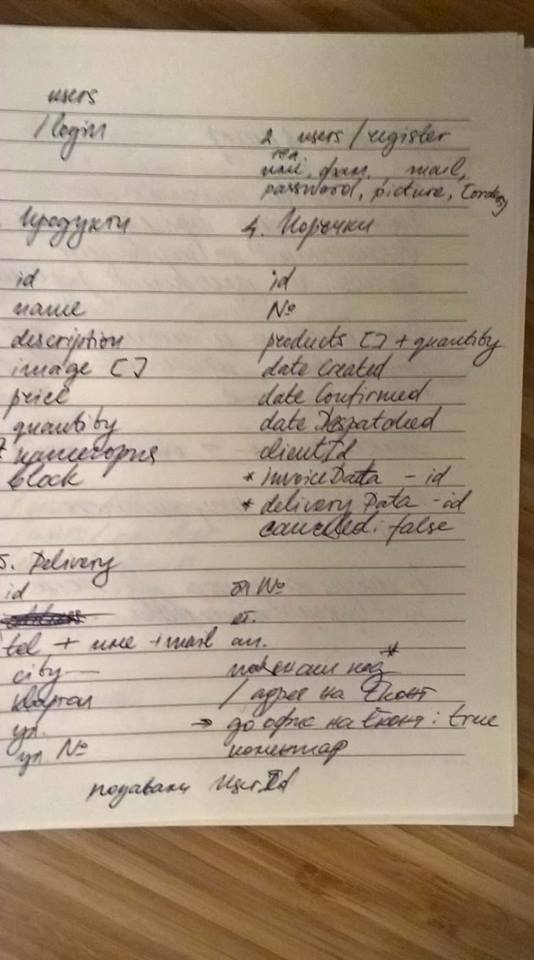 users
/login
2 users / register
тел.
име, фам., mail,
password, picture, [orders]
Продукти
id
name
description
image []
price
quantity
категория
block
4. Поръчки
id
№
products [] + quantity
date Created
date Confirmed
date Despatched
clientId
* invoiceData - id
* delivery Data - id
cancelled: false
5. Delivery
id
tel + име + mail
city
квартал
ул.
ул №
бл №
ет.
ап.
пощенски код *
/ адрес на Еконт
→ до офис на Еконт: true
коментар
подаваки UserId